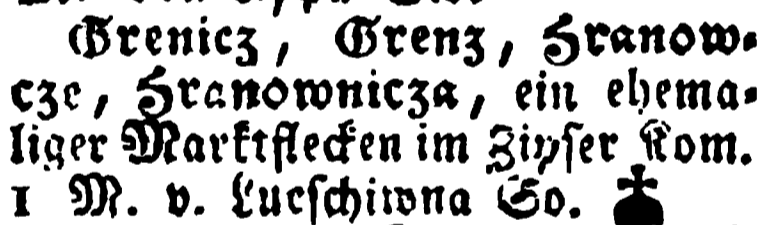 Grenicz, Grenz, Hranow-
cze, Hranownicza, ein ehema-
liger Marktflecken im Zipser Kom.
1 M. v. Lucschiwna So.